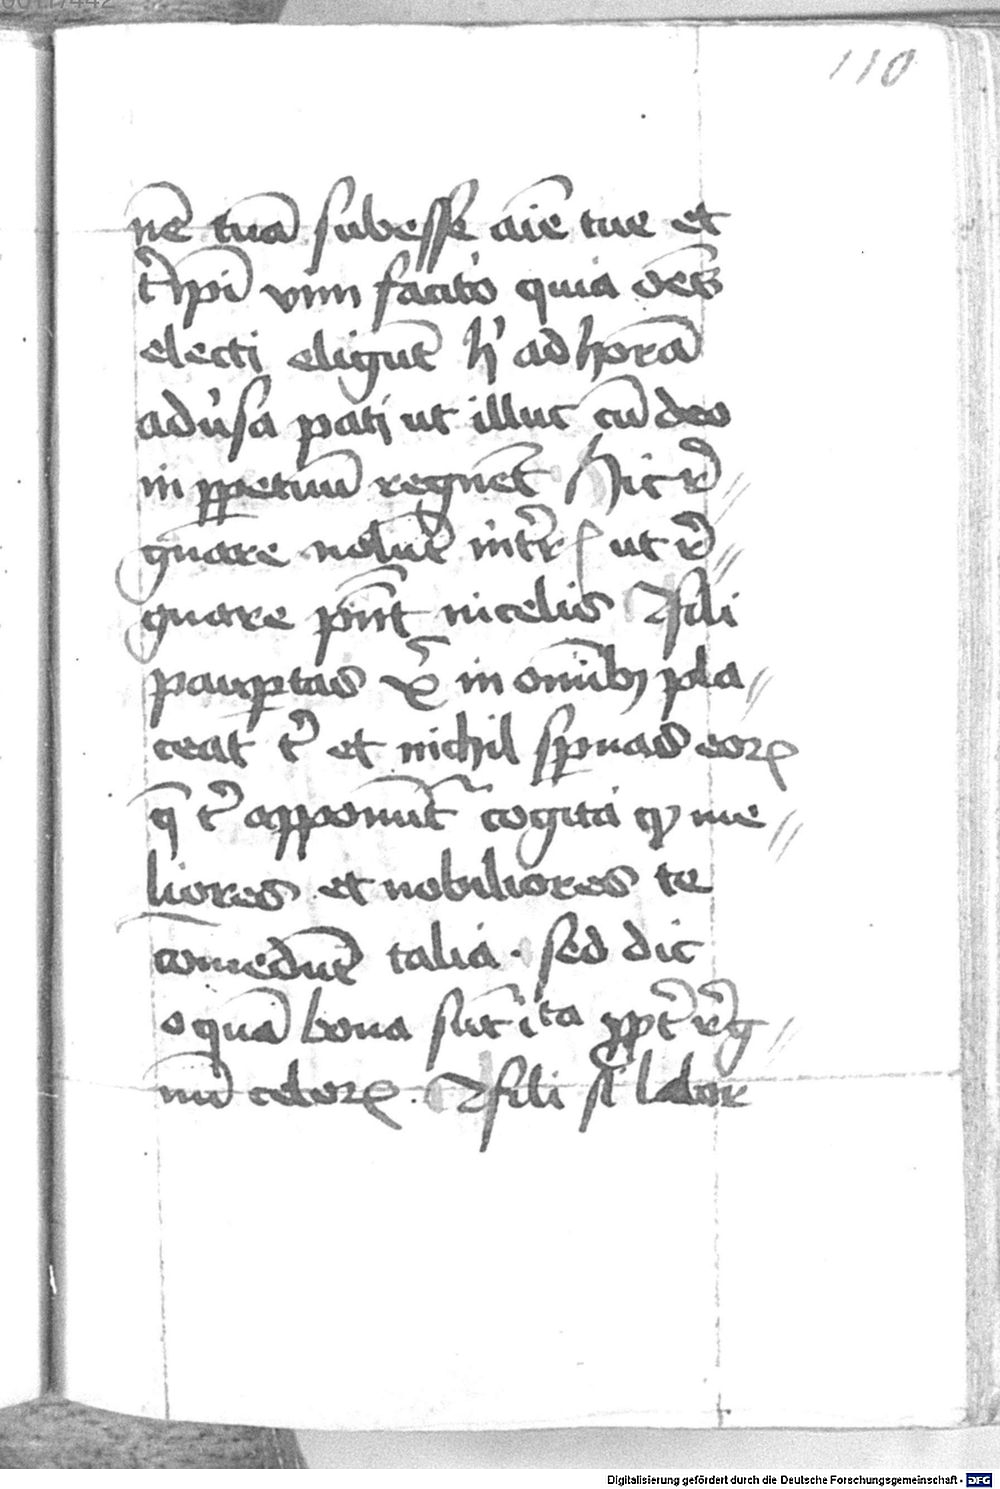 110
nē tuā subesse aīe tue et
t' ip̄i vim facito quia oēs
electi eligūt h' ad horā
adu'sa pati ut illuc cū deo
in ꝑpetuū regnēt Hic r'
gnare nolūt
gnare in celis fili
pauꝑtas in om̄ibꝫ pla
ceat t' et nichil sꝑnas eoꝝ
q̄ t' apponūt cogita me
liores et nobiliores te
comedūt talia · sed dic
o quā bona sūt ita ꝓpt' r'g
nū celoꝝ . fili si labor
Digitalisierung gefördert durch die Deutsche Forschungsgemeinschaft - DFG